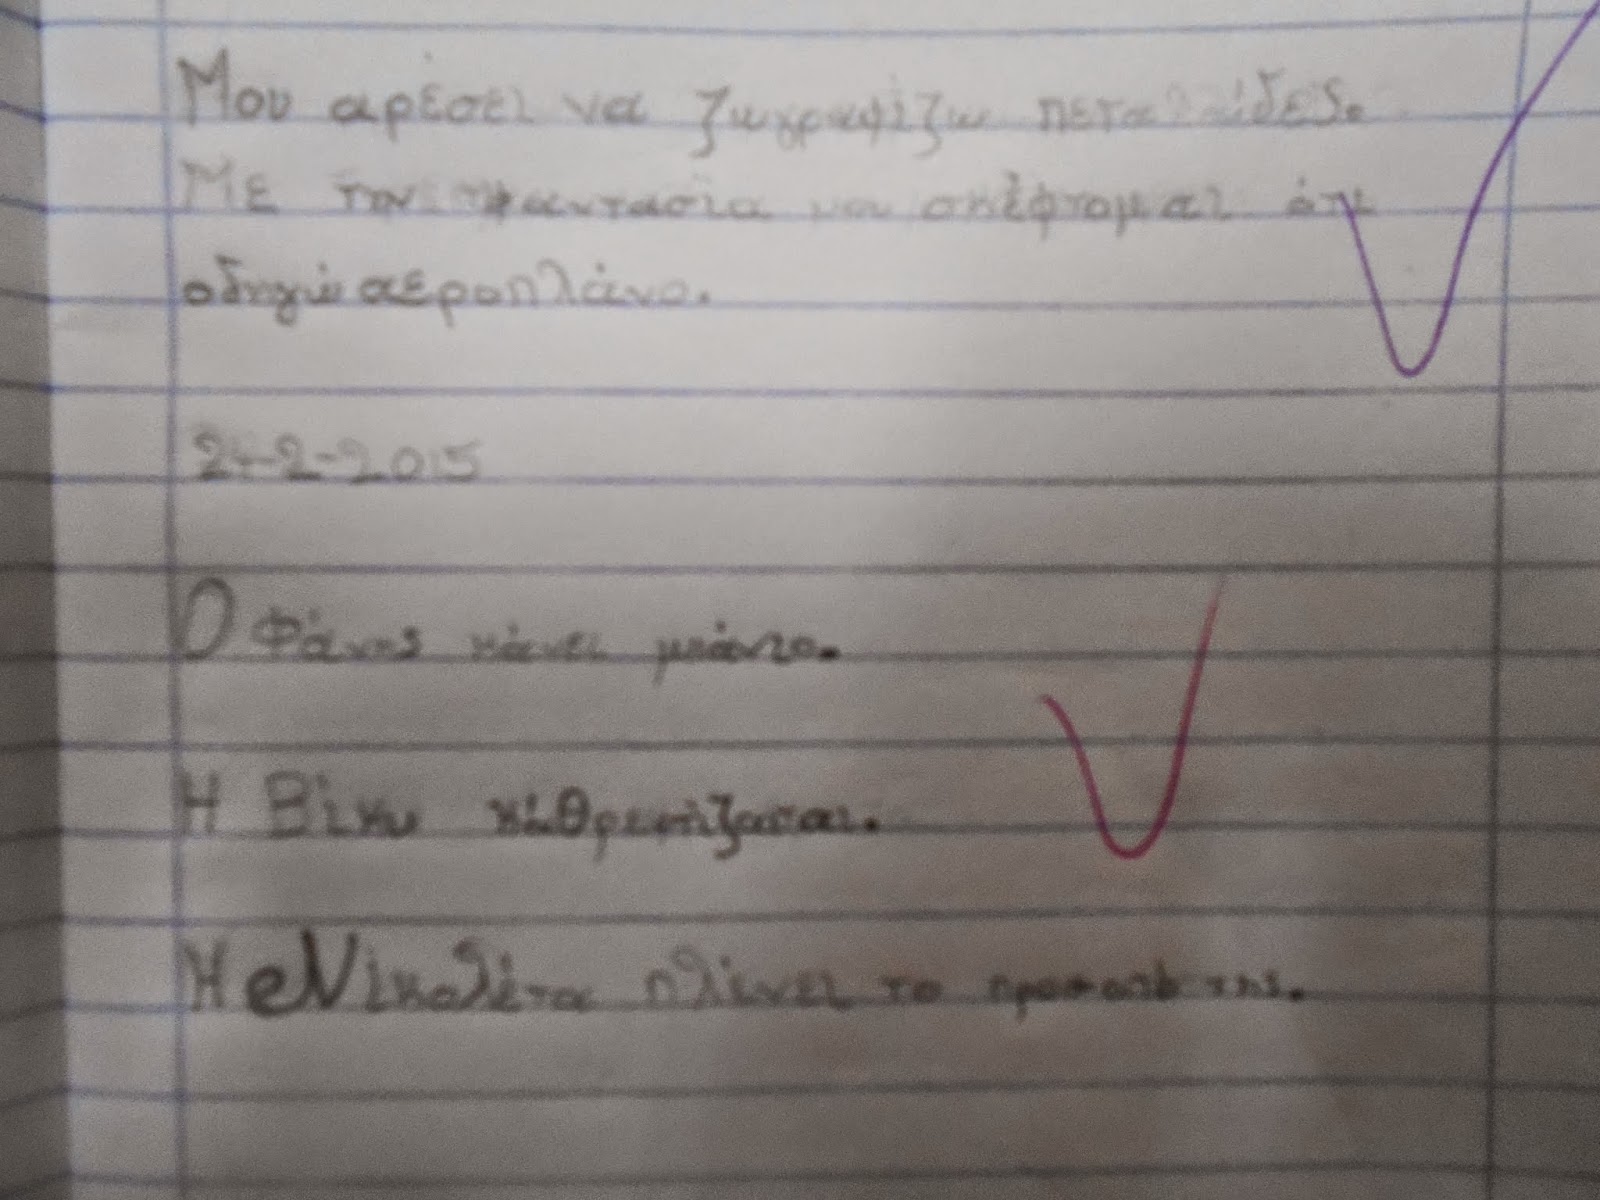 Μου αρέσει να ζωγραφίζω πεταλούδες.
Με την φαντασία μου σκέφτομαι ότι
οδηγώ αεροπλάνο.
24-2-2015
Ο Φάνης κάνει μπάνιο.
Η Βίκυ καθρεφτίζεται.
Η Νικολέτα πλένει το πρόσωπό της.